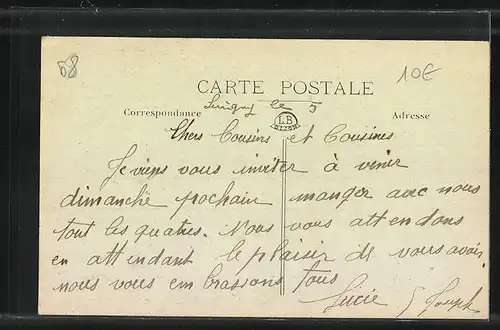 68
10€
CARTE POSTALE
Savigny le 5
Correspondance
LB
DIJON
Adresse
Chers Cousins et Cousines
Je viens vous inviter à venir
dimanche pochain manger avec nous
tout les quatres. Nous vous attendons
en attendant le plaisir de vous avoir
nous vous em brassons tous
Lucie Joseph